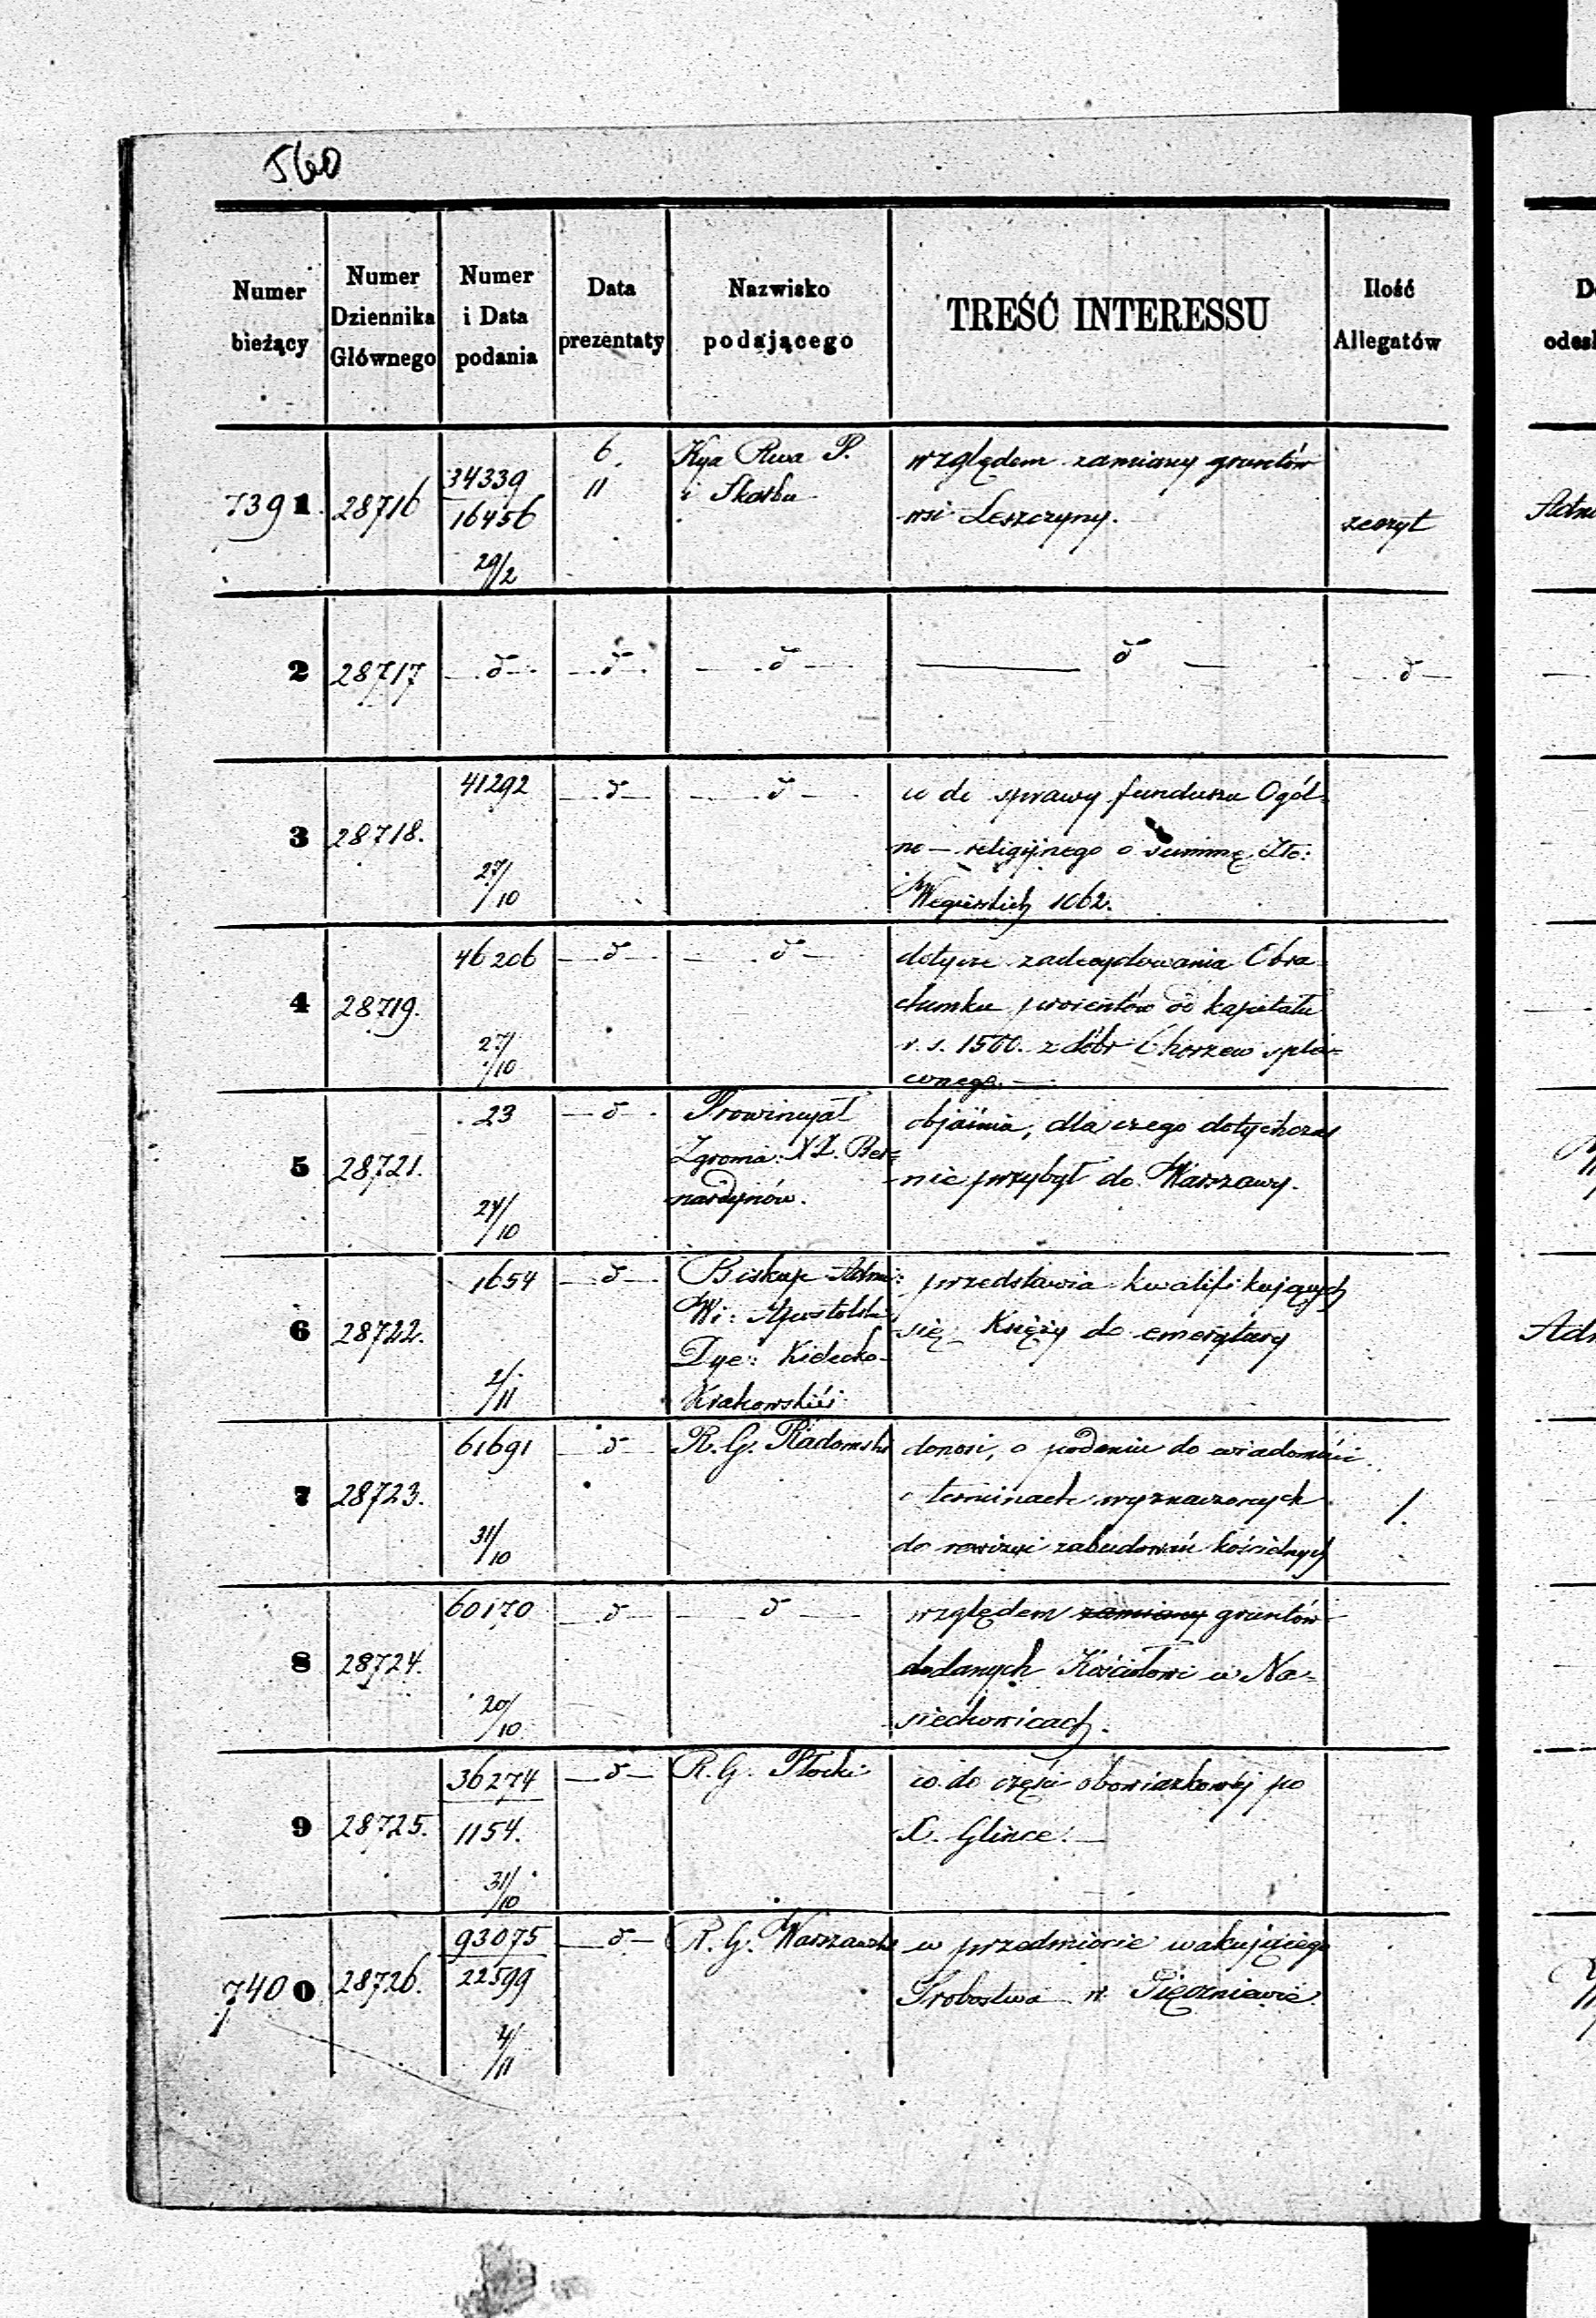 560
Numer bieżący
Numer Dziennika Głównego
Numer i Data podania
Data prezentaty
Nazwisko podającego
TREŚĆ INTERESSU
Ilość Allegatów
7391. 28716 34339 6. Kya Rwa P. względem zamiany gruntów
16456 11 i Skarbu wsi Leszczyny. zeszyt
29/2
2 28717 —ď— —ď— —ď— —ď— —ď—
41292 —ď— —ď— co do sprawy funduszu Ogól-
3 28718. no-religijnego o summę Zło:
27/10 Węgierskich 1062.
46206 —ď— —ď— dotycze zadecydowania Obra-
4 28719. chunku procentów od kapitału
27/10 r. s. 1500. z dóbr Chorzew spła-
conego.—
23 —ď— Prowincyał objaśnia, dla czego dotychczas
5 28721. Zgroma: XX. Ber= nie przybył do Warszawy.
24/10 nardynów.
1654 —ď— Biskup Admi: przedstawia kwalifikujących
6 28722. Apostolski się Księży do emerytury
2/11 Dye: Kielecko-
Krakowskiéj
61691 —ď— R. G. Radomski donosi, o podaniu do wiadomości
7 28723. o terminach wyznaczonych 1.
31/10 do rewizyi zabudowań kościelnych
60170 —ď— —ď— względem zamiany gruntów
8 28724. dodanych Kościołowi w Na=
20/10 siechowicach.
36274 —ď— R. G. Płocki co do części obowiązkowéj po
9 28725. 1154. X. Glince.—
31/10
93075 —ď— R. G. Warszawski w przedmiocie wakującego
7400 28726. 22599 Probostwa w Pięczniewie.
4/11